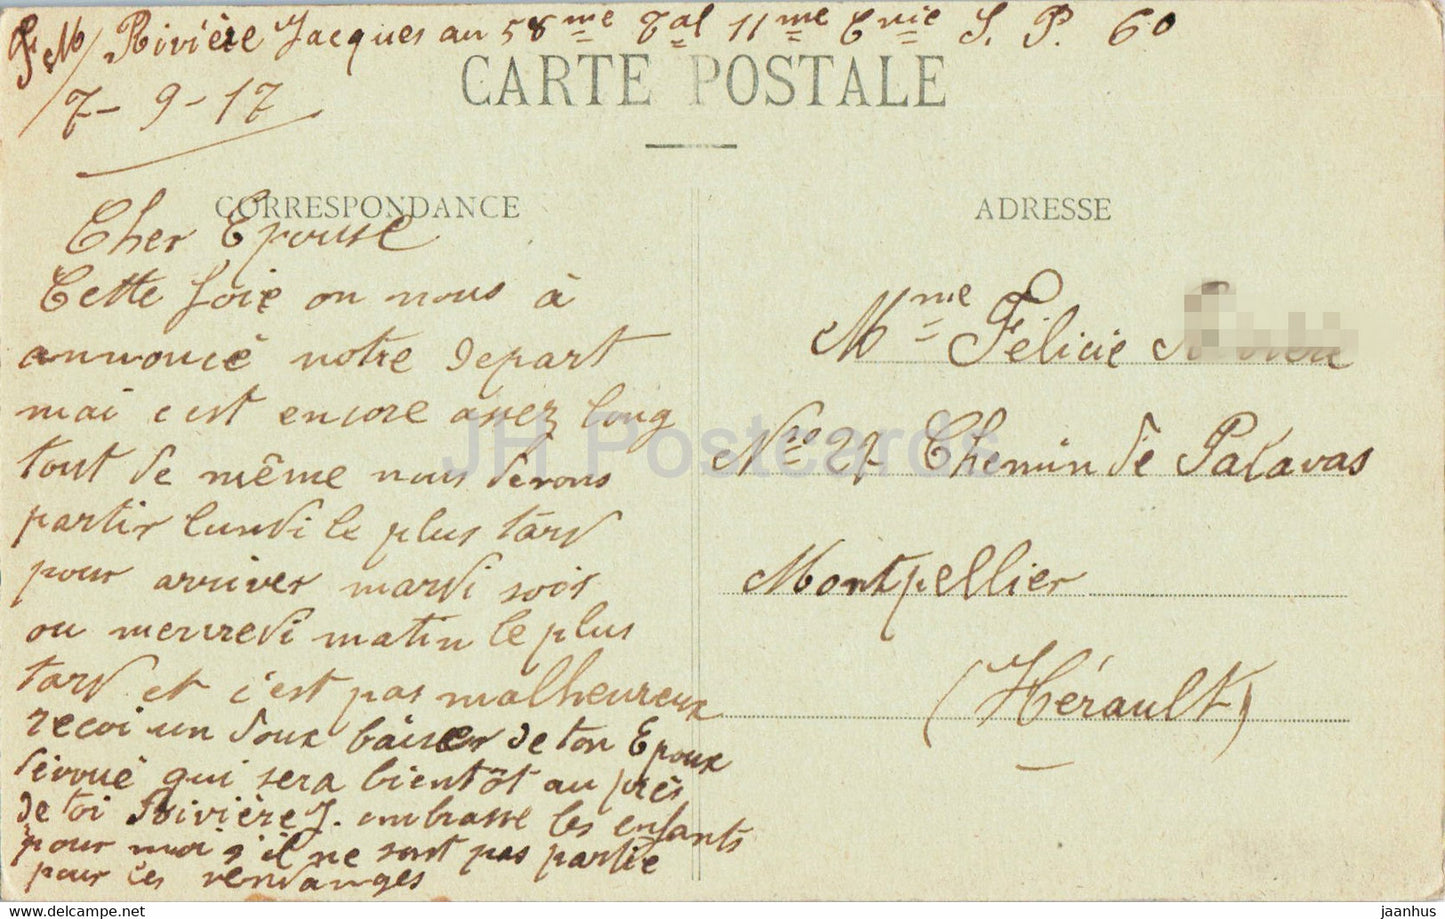 F. M / Rivière Jacques au 58me Tal 11me Cnie S. P. 60
7-9-17
CARTE POSTALE
CORRESPONDANCE
Cher Epouse
Cette foix on nous à
annoncé notre depart
mai c'est encore assez long
tout de même nous devons
partir lundi le plus tard
pour arriver mardi soir
ou mercredi matin le plus
tard et c'est pas malheureux
recoi un doux baiser de ton Epoux
dévoué qui sera bientôt au près
de toi Rivière J. embrasse les enfants
pour moi s'il ne sont pas partie
pour les vendanges
ADRESSE
Mme Félicie
No 27 Chemin de Palavas
Montpellier
(Hérault)
JH Postcards
www.jhpostcards.com
jaanhus